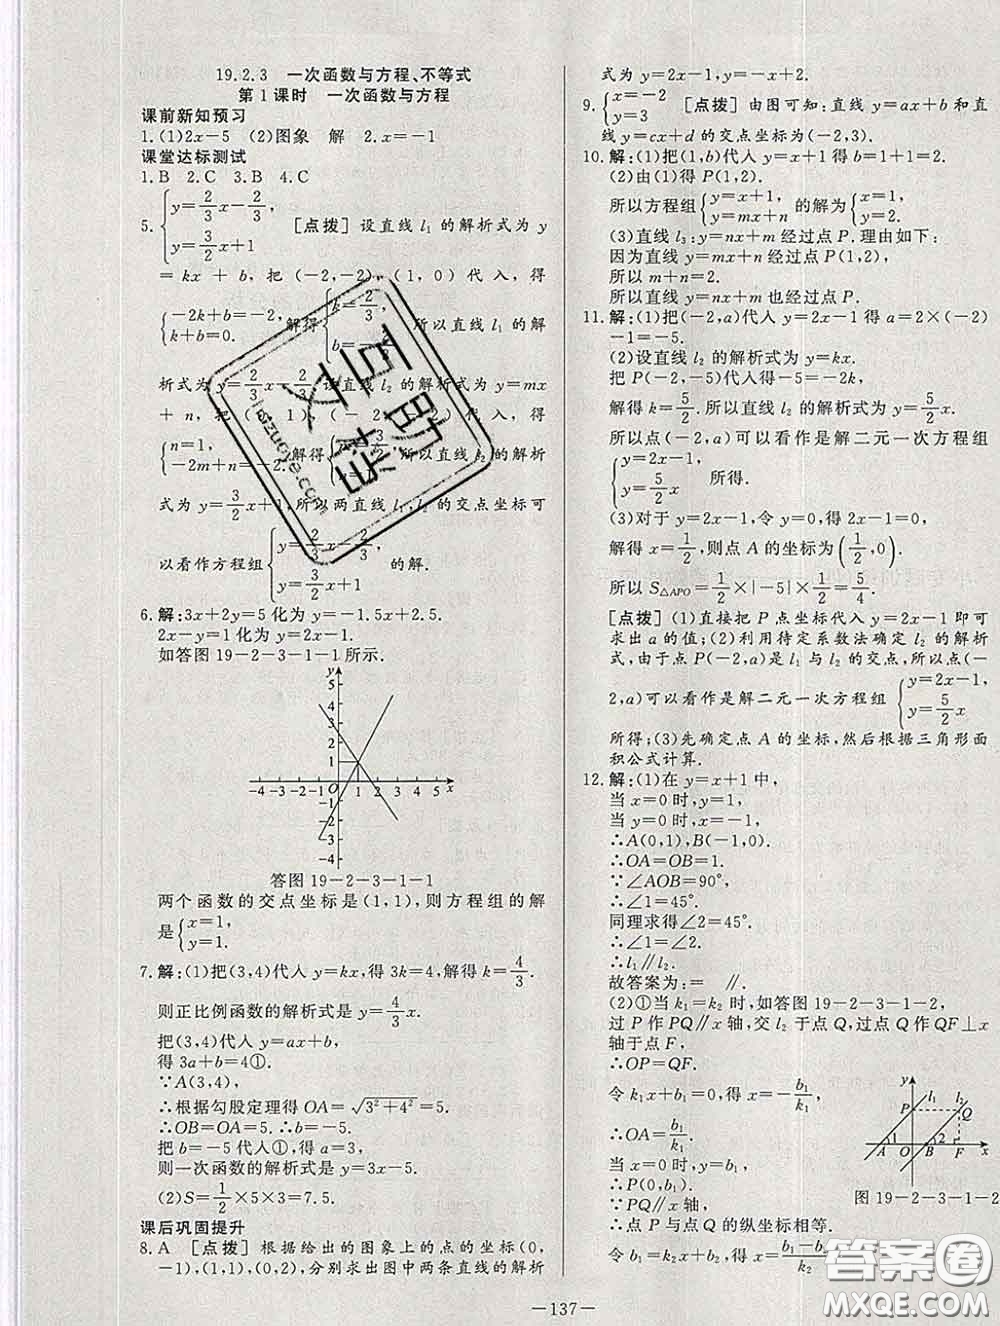 19.2.3 一次函数与方程、不等式
第1课时 一次函数与方程
课前新知预习
1.(1)2x-5 (2)图象 解 2.x=-1
课堂达标测试
1.B 2.C 3.B 4.C
5. { y=2/3x-2/3, y=3/2x+1 [点拨] 设直线 l₁ 的解析式为 y
=kx+b,把(-2,-2),(1,0)代入,得
{ -2k+b=-2, k+b=0. 解得 { k=2/3, b=- 所以直线 l₁ 的解
析式为 y=2/3x-2/3 设直线 l₂ 的解析式为 y=mx
+n,把( 1),(-2 代入,得
{ n=1, -2m+n=-2. 解得 所以直线 l₂ 的解析
式为 y=3/2x+1,所以两直线 l₁,l₂ 的交点坐标可
以看作方程组 { y=2/3x-2/3, y=3/2x+1 的解.
6.解:3x+2y=5 化为 y=-1.5x+2.5.
2x-y=1 化为 y=2x-1.
如答图 19-2-3-1-1 所示.
y
5
4
3
2
1
-4 -3 -2 -1 O 1 2 3 4 5 x
-1
-2
-3
-4
答图 19-2-3-1-1
两个函数的交点坐标是(1,1),则方程组的解
是 { x=1, y=1.
7.解:(1)把(3,4)代入 y=kx,得 3k=4,解得 k=4/3.
则正比例函数的解析式是 y=4/3x.
把(3,4)代入 y=ax+b,
得 3a+b=4①.
∵A(3,4),
∴根据勾股定理得 OA=√(3²+4²)=5.
∴OB=OA=5.∴b=-5.
把 b=-5 代入①,得 a=3,
则一次函数的解析式是 y=3x-5.
(2)S=1/2×5×3=7.5.
课后巩固提升
8.A [点拨] 根据给出的图象上的点的坐标(0,
-1),(1,1),(0,2),分别求出图中两条直线的解析
式为 y=2x-1,y=-x+2.
9. { x=-2 y=3 [点拨] 由图可知:直线 y=ax+b 和直
线 y=cx+d 的交点坐标为(-2,3).
10.解:(1)把(1,b)代入 y=x+1 得 b=1+1=2.
(2)由(1)得 P(1,2).
所以方程组 { y=x+1, y=mx+n 的解为 { x=1, y=2.
(3)直线 l₃:y=nx+m 经过点 P.理由如下:
因为直线 y=mx+n 经过点 P(1,2),
所以 m+n=2.
所以直线 y=nx+m 也经过点 P.
11.解:(1)把(-2,a)代入 y=2x-1 得 a=2×(-2)
-1=-5.
(2)设直线 l₂ 的解析式为 y=kx.
把 P(-2,-5)代入得-5=-2k,
解得 k=5/2.所以直线 l₂ 的解析式为 y=5/2x.
所以点(-2,a)可以看作是解二元一次方程组
{ y=2x-1, y=5/2x 所得.
(3)对于 y=2x-1,令 y=0,得 2x-1=0,
解得 x=1/2,则点 A 的坐标为(1/2,0).
所以 S△APO=1/2×|-5|×1/2=5/4.
[点拨] (1)直接把 P 点坐标代入 y=2x-1 即可
求出 a 的值;(2)利用待定系数法确定 l₂ 的解析
式,由于点 P(-2,a)是 l₁ 与 l₂ 的交点,所以点(-
2,a)可以看作是解二元一次方程组 { y=2x-1, y=5/2x
所得;(3)先确定点 A 的坐标,然后根据三角形面
积公式计算.
12.解:(1)在 y=x+1 中,
当 x=0 时,y=1,
当 y=0 时,x=-1,
∴A(0,1),B(-1,0).
∴OA=OB=1.
∵∠AOB=90°,
∴∠1=45°.
同理求得∠2=45°.
∴∠1=∠2.
∴l₁∥l₂.
故答案为:= ∥.
(2)①当 k₁=k₂ 时,如答图 19-2-3-1-2,
过 P 作 PQ∥x 轴,交 l₂ 于点 Q,过点 Q 作 QF⊥x
轴于点 F,
∴OP=QF.
令 k₁x+b₁=0,得 x=-b₁/k₁,
∴OA=b₁/k₁.
当 x=0 时,y=b₁,
∴P(0,b₁).
∵PQ∥x 轴,
∴点 P 与点 Q 的纵坐标相等.
令 b₁=k₂x+b₂,得 x=(b₁-b₂)/k₂
y l₁ l₂
P Q
1 2
A O B F x
图 19-2-3-1-2
—137—
互助文档
答案圈
MXQE.COM